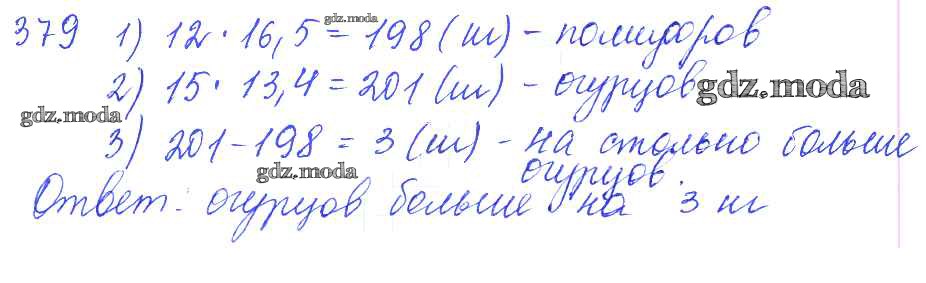 379 1) 12 · 16,5 = 198 (кг) - помидоров
gdz.moda
2) 15 · 13,4 = 201 (кг) - огурцов
gdz.moda
gdz.moda
3) 201 - 198 = 3 (кг) - на столько больше
огурцов.
gdz.moda
Ответ: огурцов больше на 3 кг